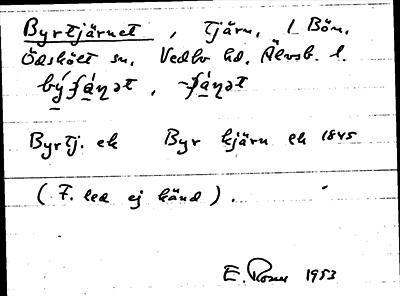 Byrtjärnet, Tjärn, l Bön.
Ödskölt sn, Vedbo hd. Älvsb. l.
bý ʃáṇət, -ʃáṇət
Byrtj. ek Byr kjärn ek 1845
(F. led ej känd).
E. 1953